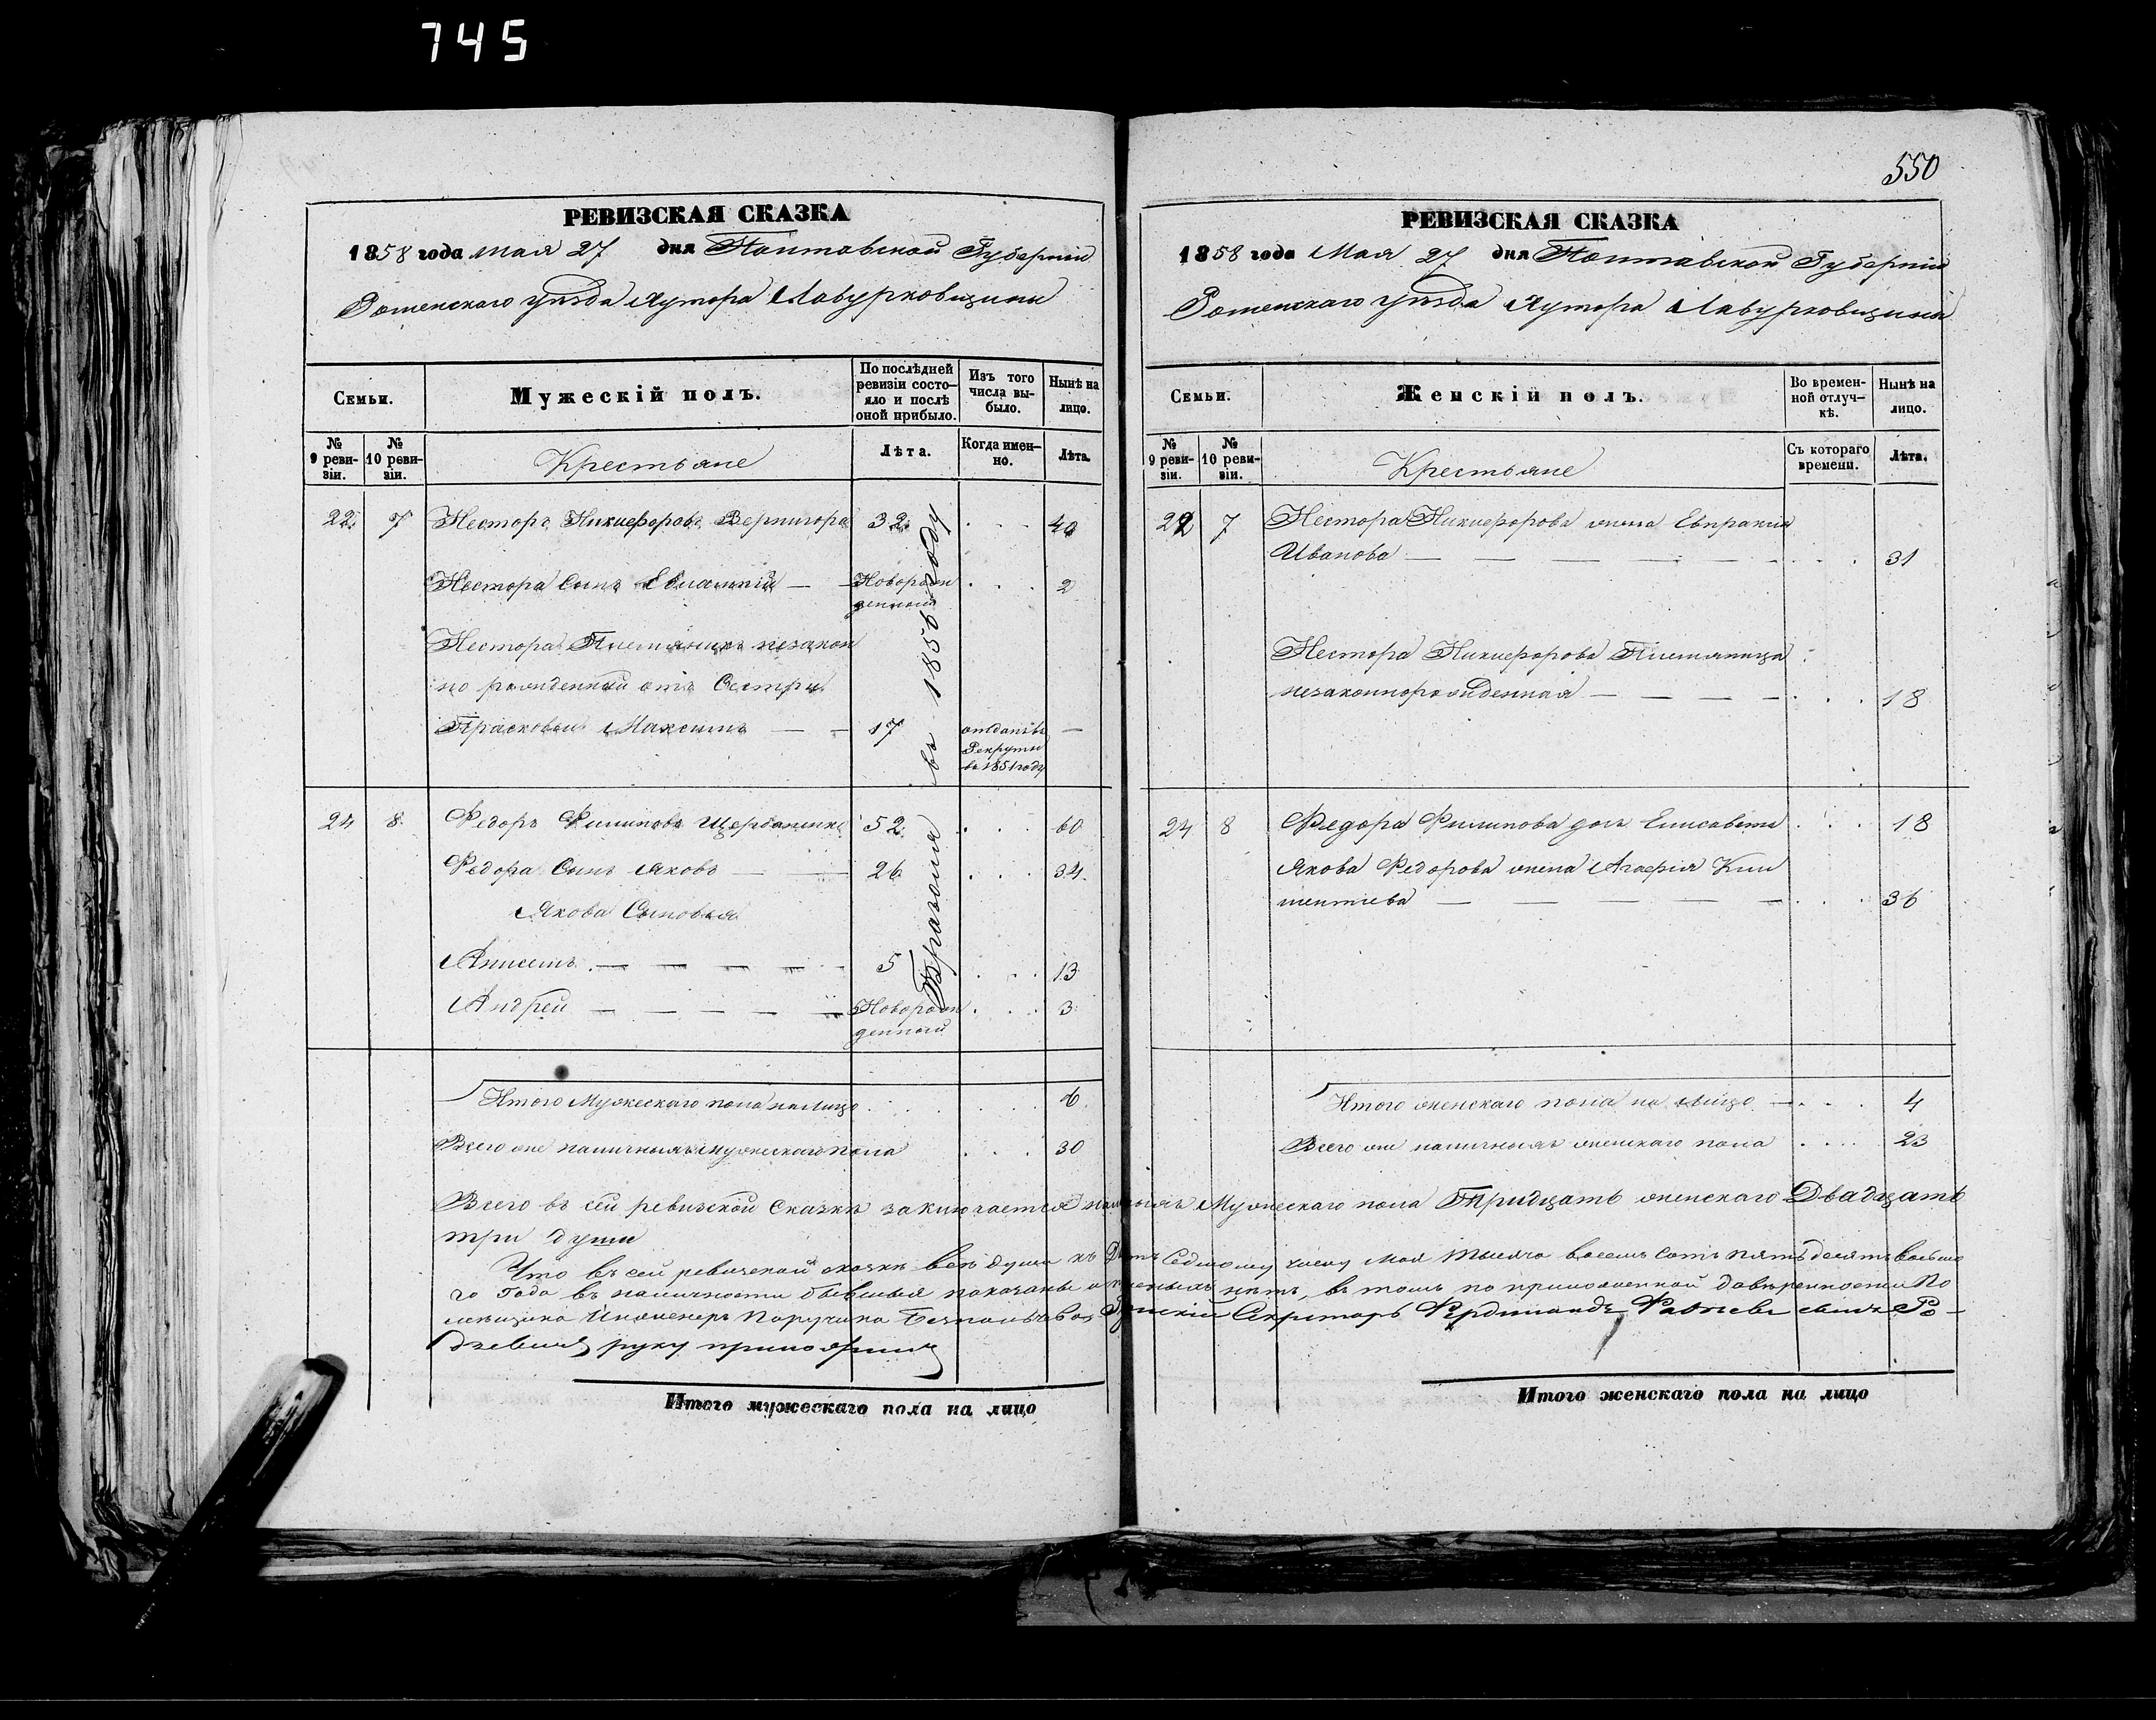 745
РЕВИЗСКАЯ СКАЗКА
1858 года мая 27 дня Полтавской Губерніи
Роменскаго уѣзда Хутора Лавурковщины
Семьи.
Мужескій полъ.
По послѣдней ревизіи состо-
яло и послѣ
оной прибыло.
Изъ того
числа вы-
было.
Нынѣ на
лицо.
№
9 реви-
зіи.
№
10 реви-
зіи.
Крестьяне
Лѣта.
Когда имен-
но.
Лѣта.
22. 7 Несторъ Никифоровъ Вернигора 32. 40
Нестора Сынъ — Новорож
денный 2
Нестора Племяникъ незакон
но рожденный отъ Сестры
Прасковьи Максимъ — — 17 отданъ въ
Рекруты
въ 1851 году —
Прибыли въ 1856 году
24 8. Федоръ Филиповъ Щербаченко 52. 60
Федора Сынъ Яковъ — — 26 34.
Якова Сыновья
Анисимъ — — — — 5 13
Андрей — — — — — Новорож
денный 3
Итого Мужескаго пола на лицо 6.
Всего же наличныхъ мужескаго пола 30
550
РЕВИЗСКАЯ СКАЗКА
1858 года Мая 27 дня Полтавской Губерніи
Роменскаго уѣзда Хутора Лавурковщины
Семьи.
Женскій полъ.
Во времен-
ной отлуч-
кѣ.
Нынѣ на
лицо.
№
9 реви-
зіи.
№
10 реви-
зіи.
Крестьяне
Съ котораго
времени.
Лѣта.
22 7 Нестора Никифорова жена Евпраксія
Иванова — — — — — — 31
Нестора Никифорова Племяница
незаконнорожденная — — — — 18
24 8 Федора Филипова дочь Елисавета 18
Якова Федорова жена Агафія Кли
ментіева — — — — — 36
Итого женскаго пола на лицо — 4
Всего же наличныхъ женскаго пола 23
Всего въ сей ревизской сказкѣ заключается наличныхъ Мужескаго пола Тридцать женскаго Двадцать
три души
Что въ сей ревизской сказкѣ всѣ души къ Двадцать Седьмому числу Мая тысяча восемь сотъ пятьдесятъ восьма
го года въ наличности бывшія показаны и нѣтъ, въ томъ по приложенной довѣренности По
мѣщика Инженеръ Поручика Секретарь Фердинандъ
руку приложилъ
Итого мужескаго пола на лицо
Итого женскаго пола на лицо